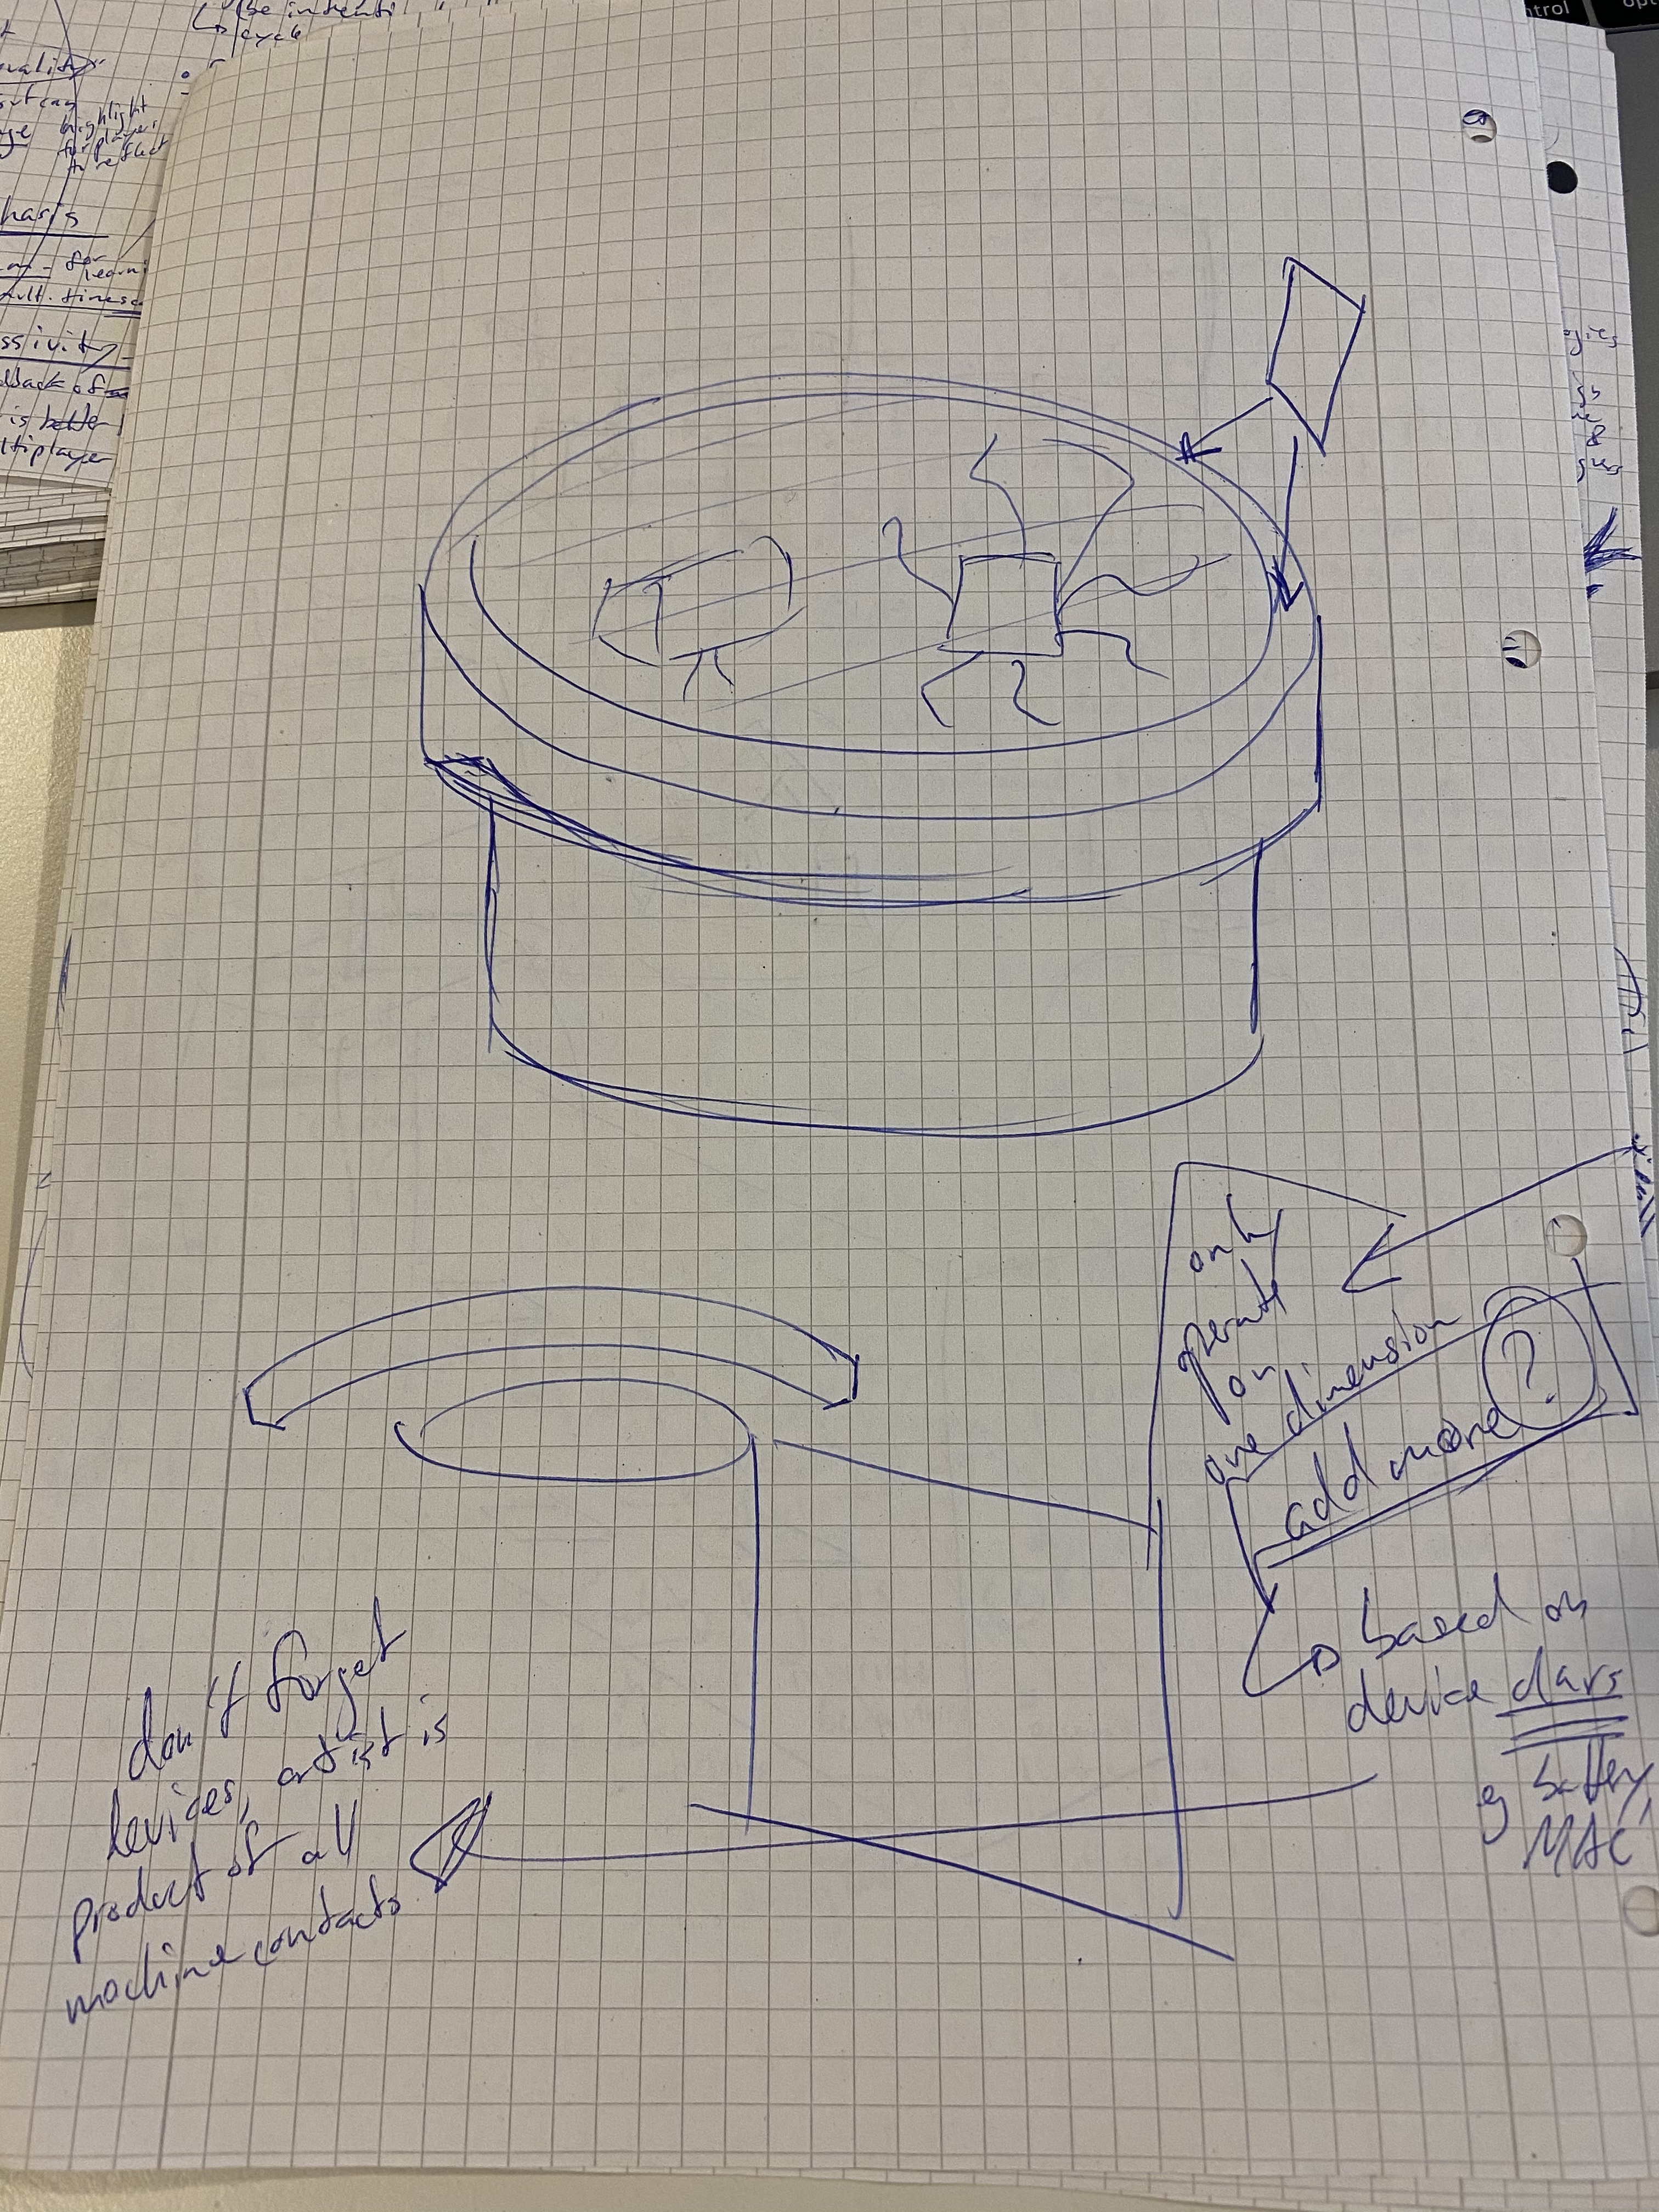 be intenti
cycle
highlight
for players
to reflect
haris
for
mult. timesc
ssivity
is better
ltiplayer
ntrol
opt
ogies
only
operate
on
one dimension
add more ?
based on
device
eg battery,
MAC
don't forget
devices, artist is
product of all
machine contacts